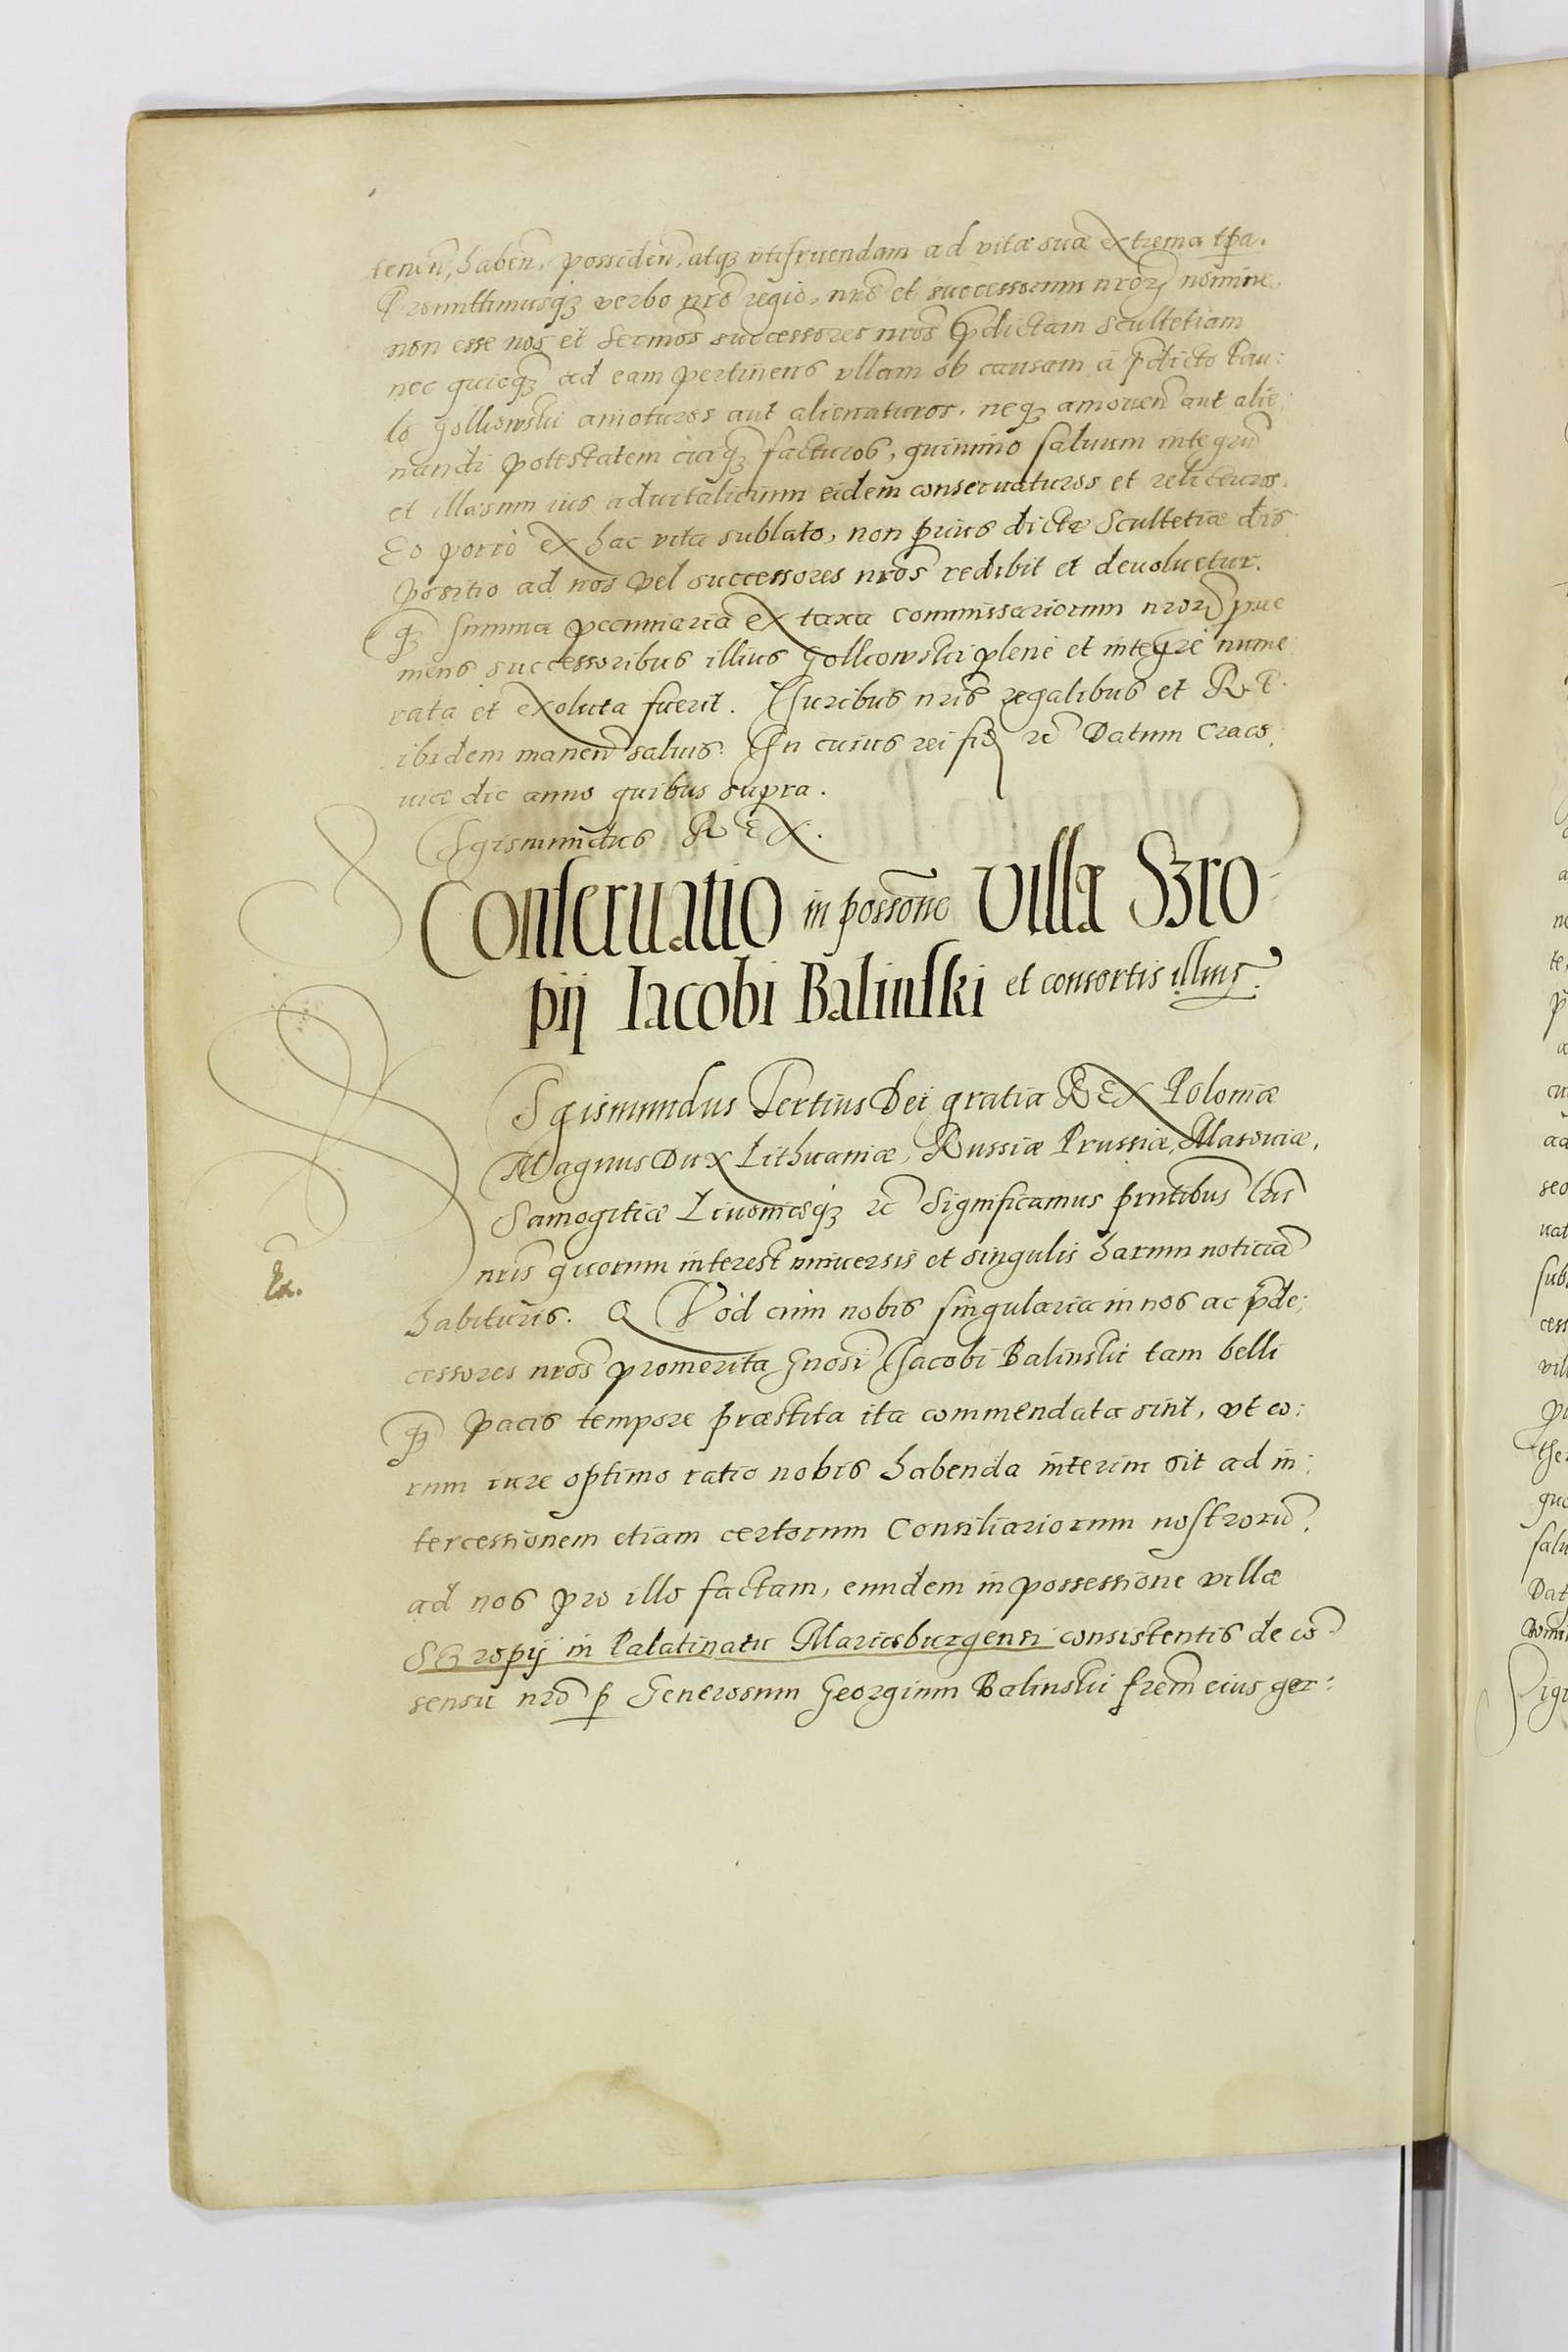 tenen̄, haben̄, possiden̄, atq₃ vtifruendam ad vitæ suæ extrema tp̄a.
Promittimusq₃ verbo nr̄o regio, nr̄o et successorum nr̄oꝝ nomine,
non esse nos et Sermōs successores nr̄os p̄dictam Scultetiam
nec quicq₃ ad eam pertinens ullam ob causam à p̄dicto Pau:
lo Golkowski amoturos aut alienaturos, neq₃ amouen̄ aut alie:
nandi potestatem cuiq₃ facturos, quinimo saluum integrū
et illæsum ius aduitalicium eidem conseruaturos et relicturos.
Eo porrò ex hac vita sublato, non prius dictæ Scultetiæ dis:
positio ad nos vel successores nr̄os redibit et deuoluetur.
q₃ summa pecuniaria ex taxa commissariorum nr̄oꝝ proue
niens successoribus illius Golkowski plenè et integrè nume:
rata et exoluta fuerit. Iuribus nr̄is regalibus et R. P.
ibidem manen̄ saluis. In cuius rei fid ꝛc Datum Craco:
uiæ die anno quibus supra.
Sigismundus REX.
Conseruatio in possōne villæ Szro:
pij Iacobi Balinski et consortis illius.
Sigismundus Tertius Dei gratia REX Poloniæ
Magnus Dux Lithuaniæ, Russiæ Prussiæ, Masouiæ,
Samogitiæ Liuoniæq₃ ꝛc Significamus pr̄ntibus lr̄is
nr̄is quorum interest vniuersis et singulis harum noticiā
habituris. QVod cùm nobis singularia in nos ac p̄de:
cessores nr̄os promerita Gnosi Iacobi Balinski tam belli
q̄ pacis tempore præstita ita commendata sint, vt eo:
rum iure optimo ratio nobis habenda interim sit ad in:
tercessionem etiam certorum Consiliariorum nostrorū.
ad nos pro illo factam, eundem in possessione villæ
Szropij in Palatinatu Mariæburgensi consistentis de cō
sensu nr̄o p̄ Generosum Georgium Balinski frem̄ eius ger: